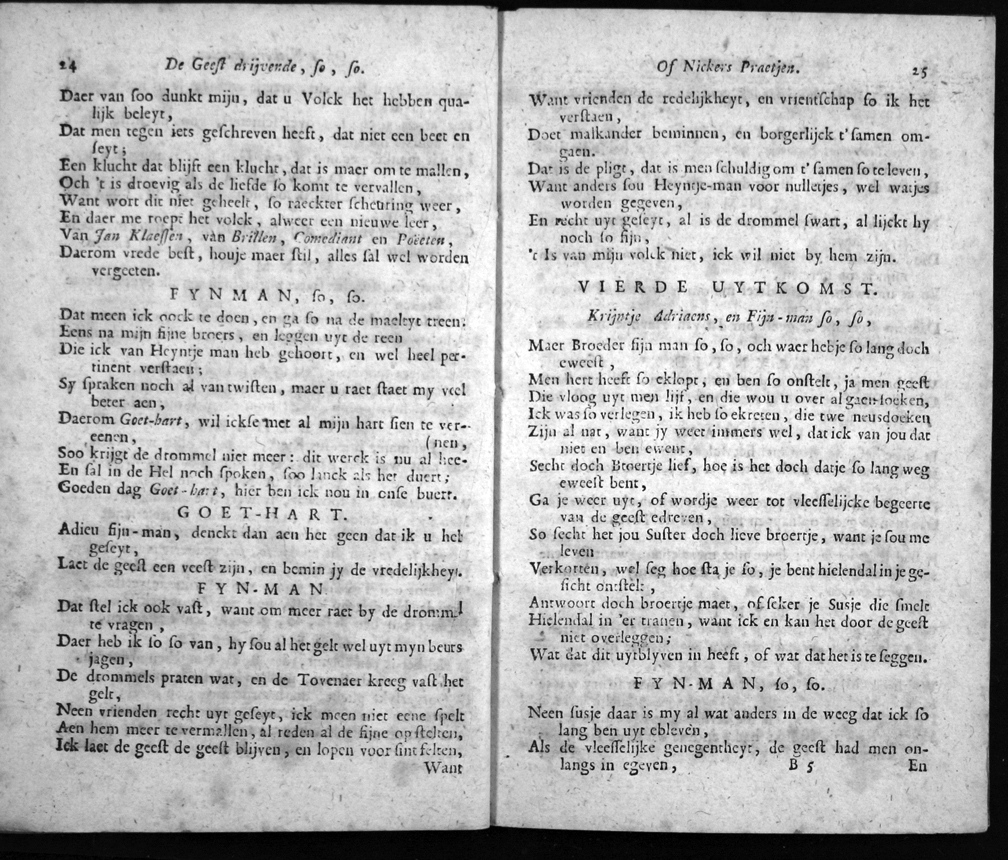 24 De Geeſt drijvende, ſo, ſo.
Daer van ſoo dunkt mijn, dat u Volck het hebben qua-
lijk beleyt,
Dat men tegen iets geſchreven heeft, dat niet een beet en
ſeyt;
Een klucht dat blijft een klucht, dat is maer om te mallen,
Och 't is droevig als de liefde ſo komt te vervallen,
Want wort dit niet geheelt, ſo raeckter ſcheuring weer,
En daer me roept het volck, alweer een nieuwe leer,
Van Jan Klaeſſen, van Brillen, Comediant en Poëeten,
Daerom vrede beſt, houje maer ſtil, alles ſal wel worden
vergeeten.
FYNMAN, ſo, ſo.
Dat meen ick oock te doen, en ga ſo na de maeltyt treen:
Eens na mijn fijne broers, en leggen uyt de reen
Die ick van Heyntje man heb gehoort, en wel heel per-
tinent verſtaen;
Sy ſpraken noch al van twiſten, maer u raet ſtaet my veel
beter aen,
Daerom Goet-hart, wil ickſe met al mijn hart ſien te ver-
eenen, (nen,
Soo krijgt de drommel niet meer: dit werck is nu al hee-
En ſal in de Hel noch ſpoken, ſoo lanck als het duert;
Goeden dag Goet-hart, hier ben ick nou in onſe buert.
GOET-HART.
Adieu fijn-man, denckt dan aen het geen dat ik u heb
geſeyt,
Laet de geeſt een veeſt zijn, en bemin jy de vredelijkheyt.
FYN-MAN
Dat ſtel ick ook vaſt, want om meer raet by de drommel
te vragen,
Daer heb ik ſo ſo van, hy ſou al het gelt wel uyt myn beurs
jagen,
De drommels praten wat, en de Tovenaer kreeg vaſt het
gelt,
Neen vrienden recht uyt geſeyt, ick meen niet eene ſpelt
Aen hem meer te vermallen, al reden al de fijne op ſtelten,
Ick laet de geeſt de geeſt blijven, en lopen voor ſint felten,
Want
Of Nickers Praetjen. 25
Want vrienden de redelijkheyt, en vrientſchap ſo ik het
verſtaen,
Doet malkander beminnen, en borgerlijck t'ſamen om-
gaen.
Dat is de pligt, dat is men ſchuldig om t'ſamen ſo te leven,
Want anders ſou Heyntje-man voor nulletjes, wel watjes
worden gegeven,
En recht uyt geſeyt, al is de drommel ſwart, al lijckt hy
noch ſo fijn,
't Is van mijn volck niet, ick wil niet by hem zijn.
VIERDE UYTKOMST.
Krijntje Adriaens, en Fijn-man ſo, ſo,
Maer Broeder fijn man ſo, ſo, och waer heb je ſo lang doch
eweeſt,
Men hert heeft ſo eklopt, en ben ſo onſtelt, ja men geeſt
Die vloog uyt men lijf, en die wou u over al gaen ſoeken,
Ick was ſo verlegen, ik heb ſo ekreten, die twe neusdoeken
Zijn al nat, want jy weet immers wel, dat ick van jou dat
niet en ben ewent,
Secht doch Broertje lief, hoe is het doch datje ſo lang weg
eweeſt bent,
Ga je weer uyt, of wordje weer tot vleeſſelijcke begeerte
van de geeſt edreven,
So ſecht het jou Suſter doch lieve broertje, want je ſou me
leven
Verkorten, wel ſeg hoe ſta je ſo, je bent hielendal in je ge-
ſicht onſtelt,
Antwoort doch broertje maet, of ſeker je Susje die ſmelt
Hielendal in 'er tranen, want ick en kan het door de geeſt
niet overleggen;
Wat dat dit uytblyven in heeft, of wat dat het is te ſeggen.
FYN-MAN, ſo, ſo.
Neen ſusje daar is my al wat anders in de weeg dat ick ſo
lang ben uyt ebleven,
Als de vleeſſelijke genegentheyt, de geeſt had men on-
langs in egeven, B 5 En